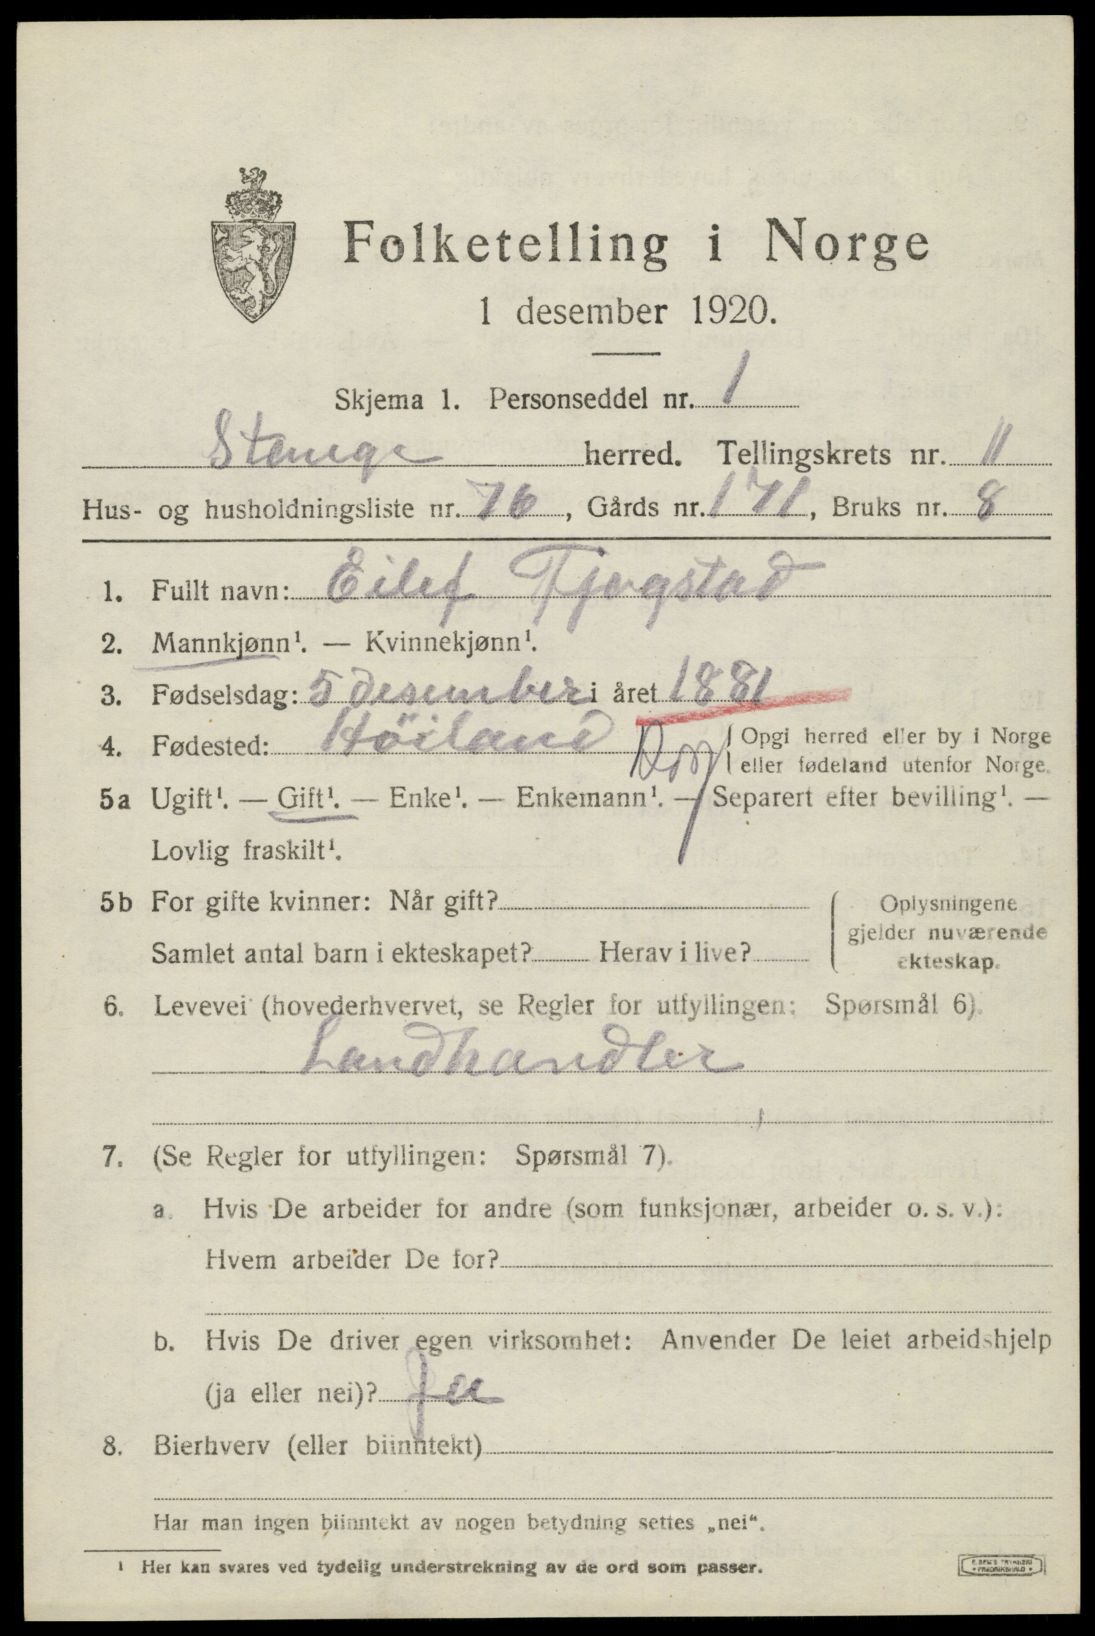 Folketelling i Norge
1 desember 1920.
Skjema 1. Personseddel nr. 1
Stange herred. Tellingskrets nr. 11
Hus- og husholdningsliste nr. 76, Gårds nr. 171, Bruks nr. 8
1. Fullt navn: Eilef Tjøgstad
2. Mannkjønn¹. — Kvinnekjønn¹.
3. Fødselsdag: 5 desember i året 1881
4. Fødested: Höiland { Opgi herred eller by i Norge
eller fødeland utenfor Norge.
5a Ugift¹. — Gift¹. — Enke¹. — Enkemann¹. — Separert efter bevilling¹. —
Lovlig fraskilt¹.
5b For gifte kvinner: Når gift?
Samlet antal barn i ekteskapet? Herav i live?
Oplysningene
gjelder nuværende
ekteskap.
6. Levevei (hovederhvervet, se Regler for utfyllingen: Spørsmål 6).
Landhandler
7. (Se Regler for utfyllingen: Spørsmål 7).
a. Hvis De arbeider for andre (som funksjonær, arbeider o. s. v.):
Hvem arbeider De for?
b. Hvis De driver egen virksomhet: Anvender De leiet arbeidshjelp
(ja eller nei)? Ja
8. Bierhverv (eller biinntekt)
Har man ingen biinntekt av nogen betydning settes „nei“.
¹ Her kan svares ved tydelig understrekning av de ord som passer.